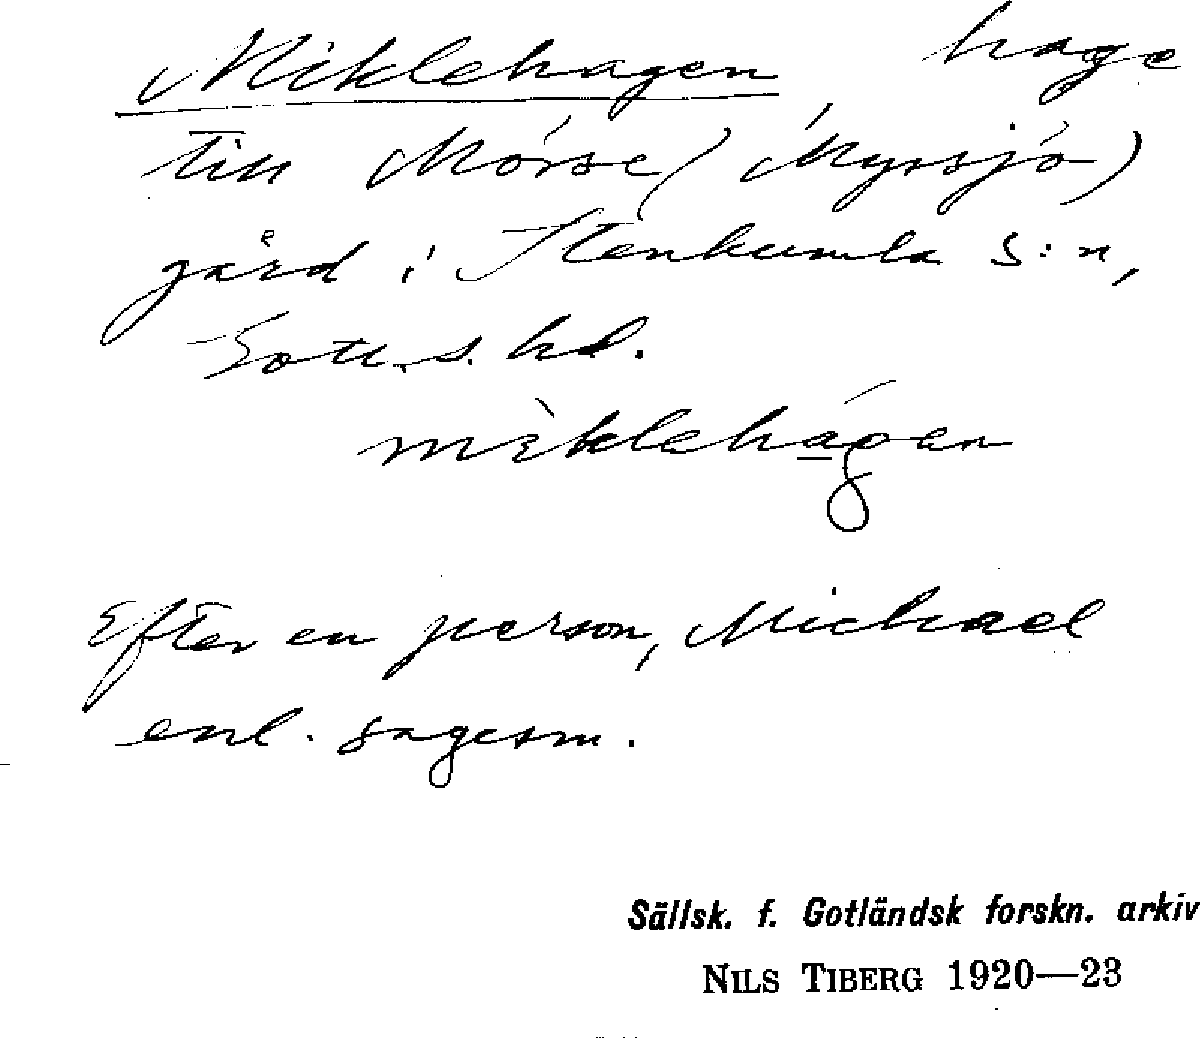 Miklehagen, hage
till Mörse (Myrsjö)
gård i Stenkumla S:n,
Gotl. s. hd.
miklehágen
Efter en person, Michael
enl. sagesm.
Sällsk. f. Gotländsk forskn. arkiv
NILS TIBERG 1920—23